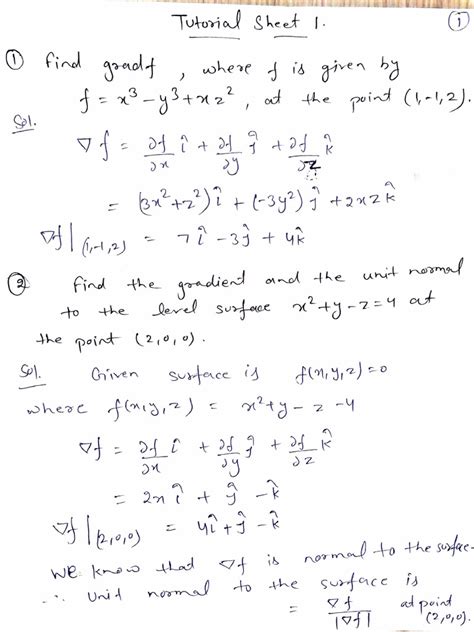 Tutorial Sheet 1.
①
① find gradf, where f is given by
f = x³ - y³ + xz², at the point (1,-1,2).
Sol.
∇f = ∂f/∂x î + ∂f/∂y ĵ + ∂f/∂z k̂
= (3x²+z²) î + (-3y²) ĵ + 2xz k̂
∇f|(1,-1,2) = 7î - 3ĵ + 4k̂
② find the gradient and the unit normal
to the level surface x²+y-z=4 at
the point (2,0,0).
Sol. Given surface is f(x,y,z)=0
where f(x,y,z) = x²+y-z-4
∇f = ∂f/∂x î + ∂f/∂y ĵ + ∂f/∂z k̂
= 2x î + ĵ - k̂
∇f|(2,0,0) = 4î + ĵ - k̂
We know that ∇f is normal to the surface.
∴ Unit normal to the surface is
= ∇f/|∇f| at point (2,0,0).